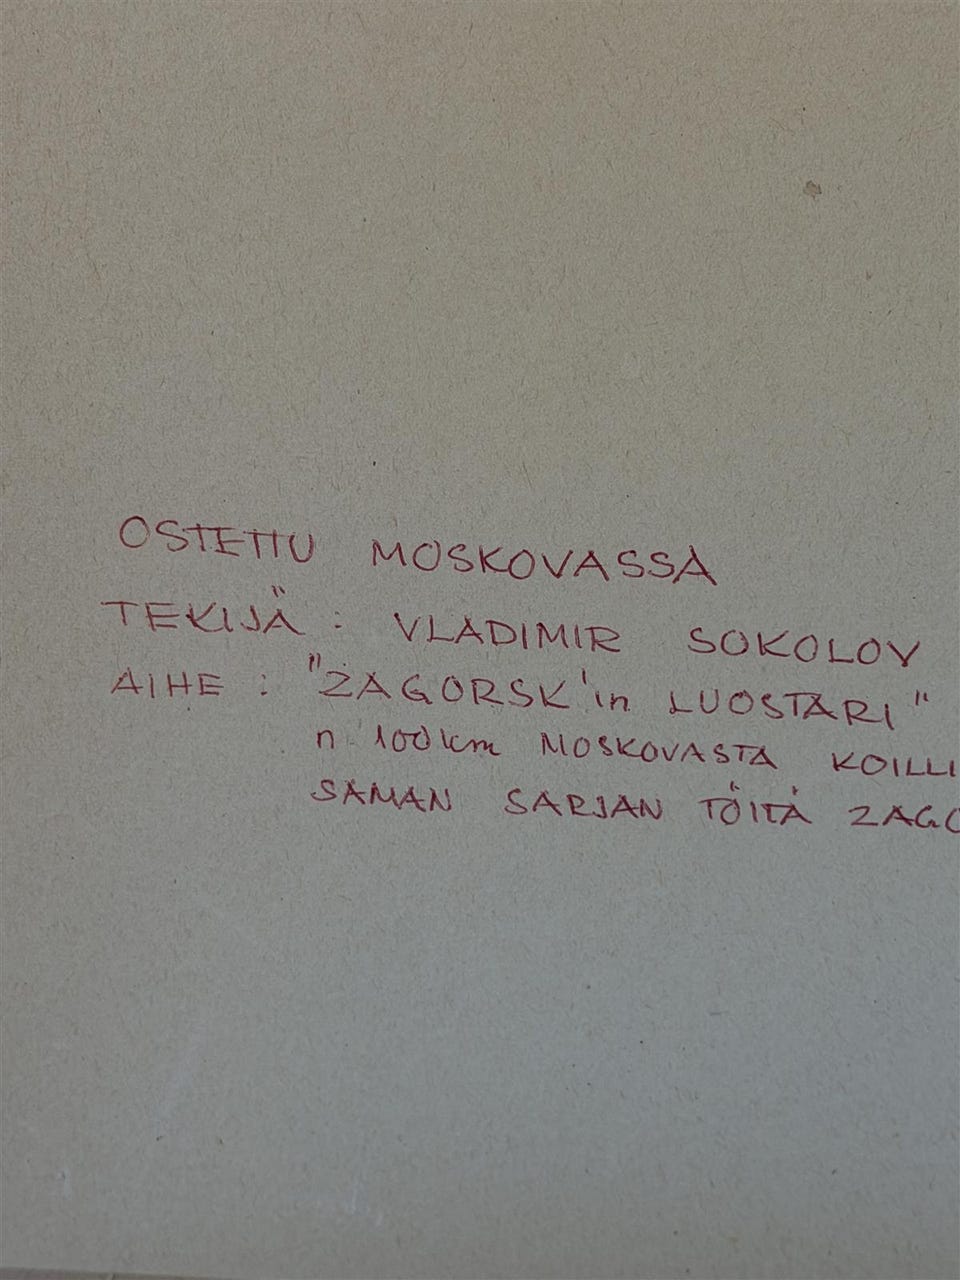 OSTETTU MOSKOVASSA
TEKIJÄ : VLADIMIR SOKOLOV
AIHE : "ZAGORSK'in LUOSTARI"
n. 100 km MOSKOVASTA KOILLI
SAMAN SARJAN TÖITÄ ZAGO